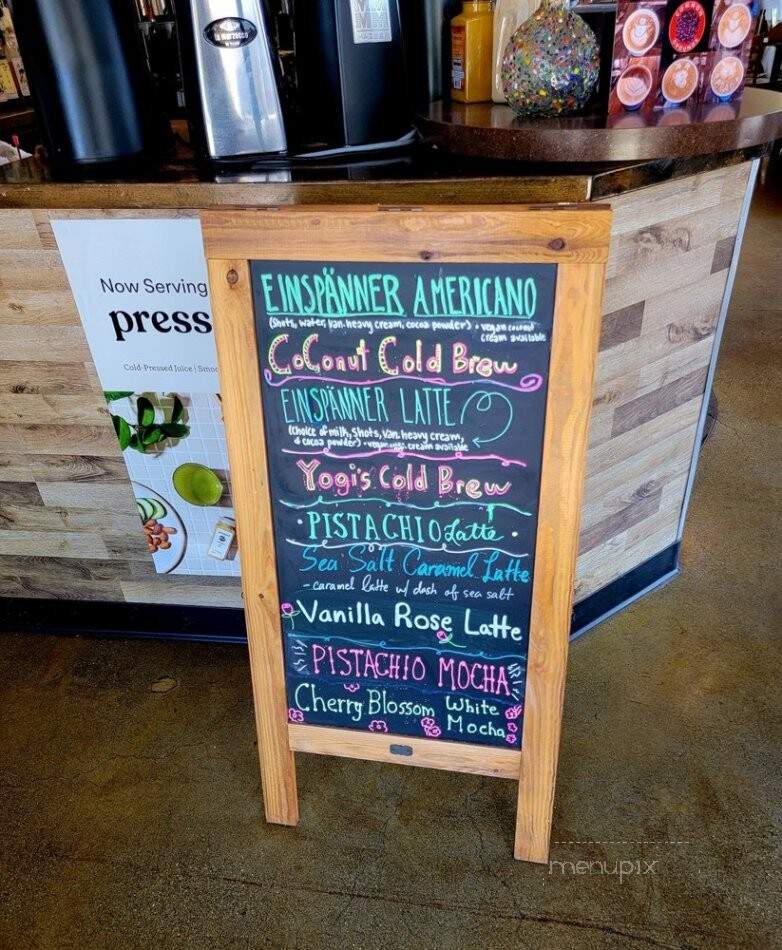 la marzocco
Now Serving
press
Cold-Pressed Juice | Smoo
EINSPÄNNER AMERICANO
(Shots, water, Van. heavy cream, cocoa powder) • vegan coconut
cream available
CoConut Cold Brew
EINSPÄNNER LATTE
(choice of milk, Shots, Van. heavy cream,
& cocoa powder) • vegan cream available
Yogi's Cold Brew
• PISTACHIO Latte •
Sea Salt Caramel Latte
- caramel latte w/ dash of sea salt
Vanilla Rose Latte
PISTACHIO MOCHA
Cherry Blossom White
Mocha
menupix